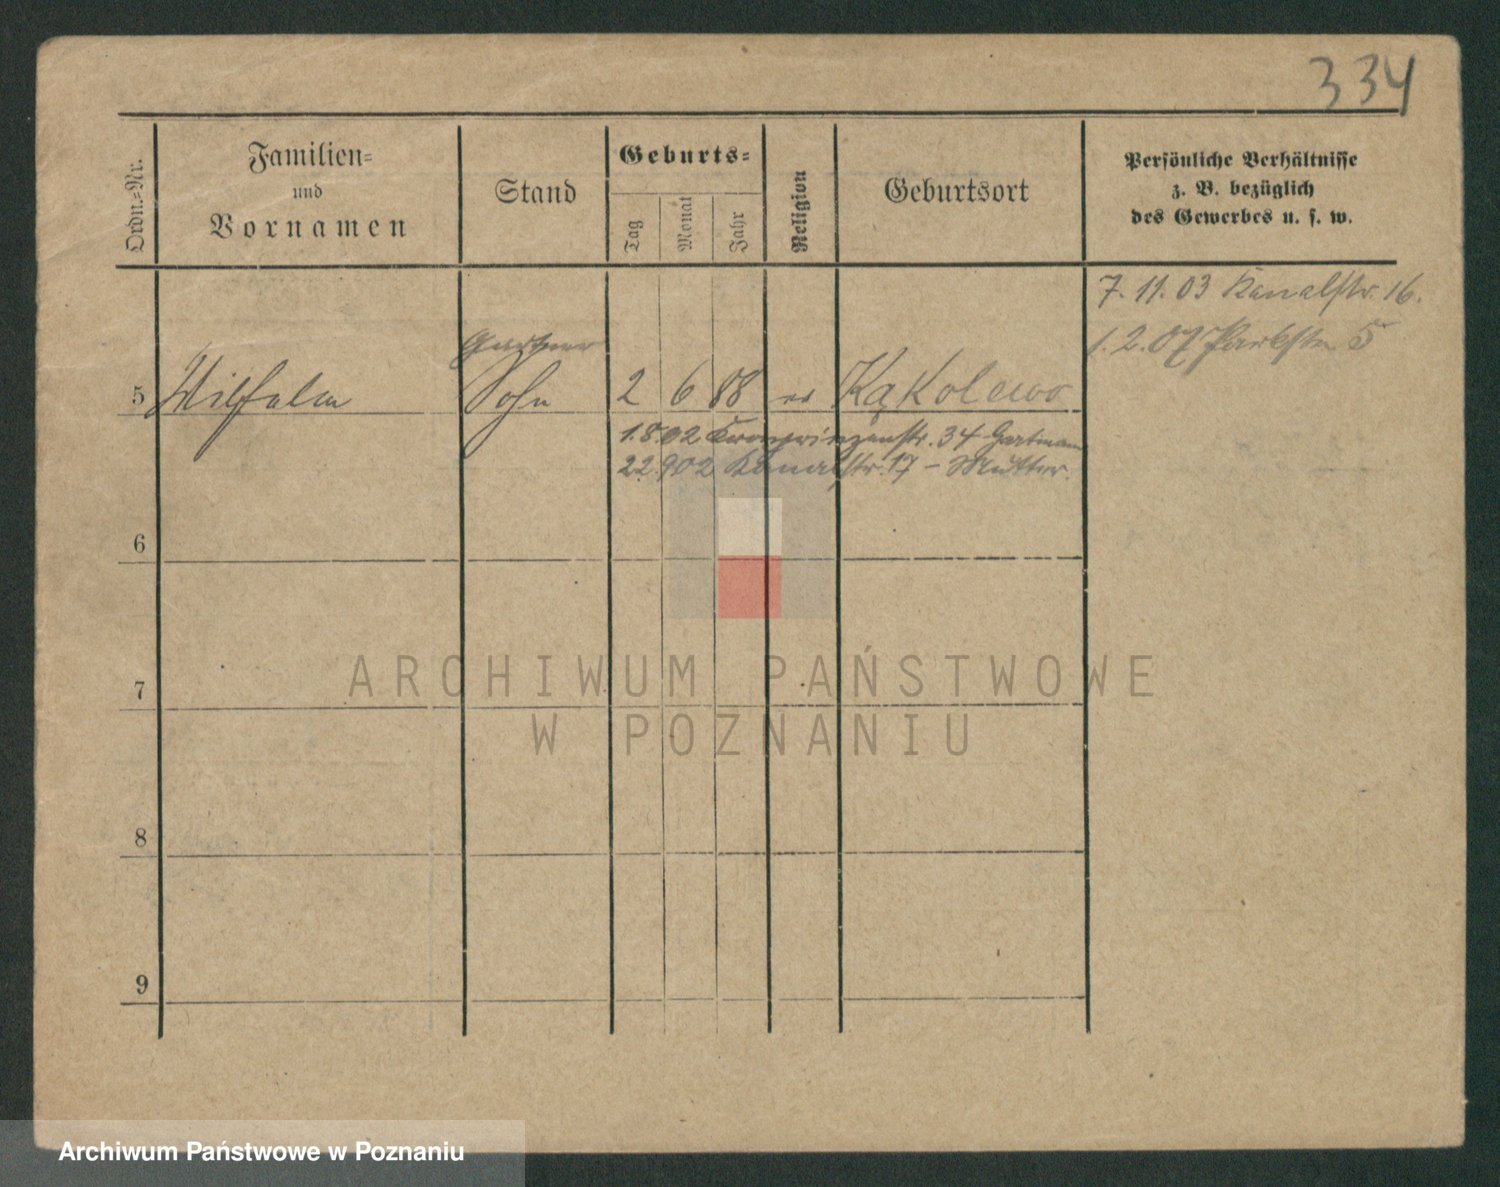 334
Ordn.=Nr.
Familien=
und
Vornamen
Stand
Geburts=
Tag
Monat
Jahr
Religion
Geburtsort
Persönliche Verhältnisse
z. B. bezüglich
des Gewerbes u. s. w.
7. 11. 03 Kanalstr. 16.
1. 2. 07 Parkstr 5
Gärtner
5 Wilhelm Sohn 2 6 88 ev Kąkolewo
1.8.02 Kronprinzenstr. 34 Gartmann
22.9.02 Kanalstr. 17 - Mutter.
6
7
8
9
ARCHIWUM PAŃSTWOWE
W POZNANIU
Archiwum Państwowe w Poznaniu